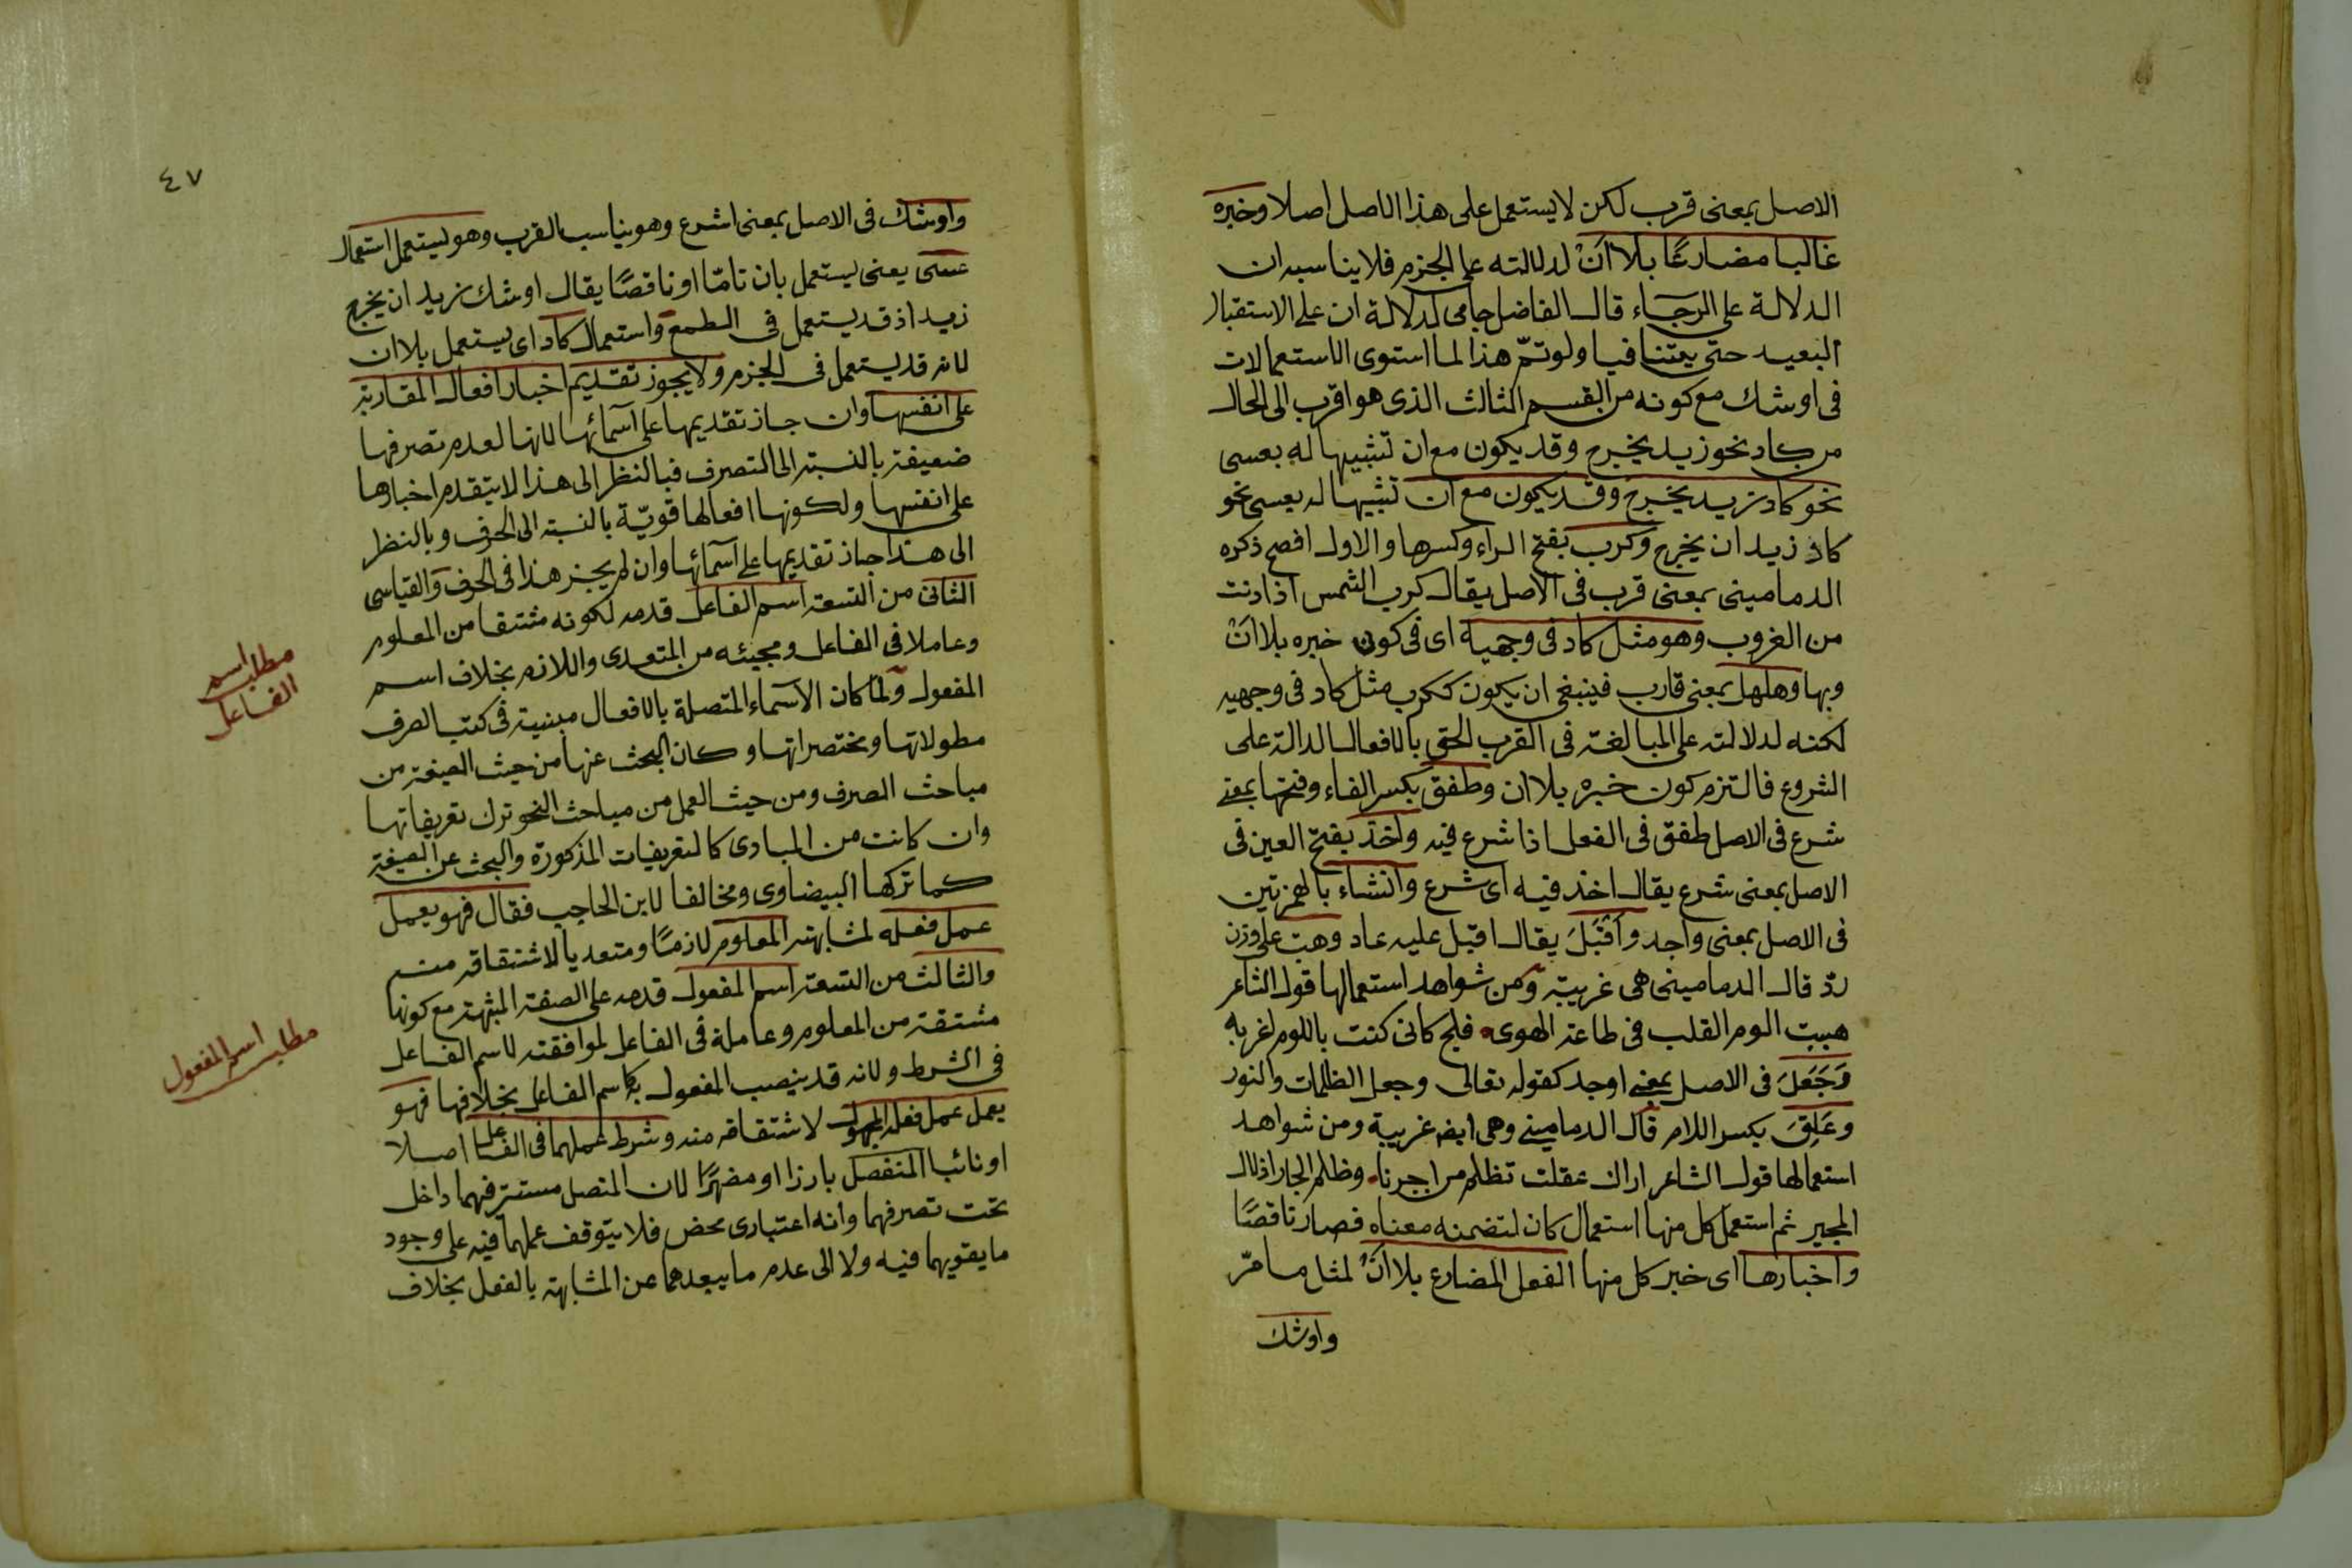 الاصل بمعنى قرب لكن لا يستعمل على هذا الاصل اصلا وخبره
غالبا مضارعًا بلا اَنْ لدلالته على الجزم فلا يناسبه ان
الدلالة على الرجاء قال الفاضل جامى لدلالة ان على الاستقبال
البعيد حتى يتنافيا ولو تمّ هذا لما استوى الاستعمالات
فى اوشك مع كونه من القسم الثالث الذى هو اقرب الى الحال
من كاد نحو زيد يخرج وقد يكون مع ان تشبيها له بعسى
نحو كاد زيد يخرج وقد يكون مع ان تشبيها له بعسى نحو
كاد زيد ان يخرج وكرب بفتح الراء وكسرها والاول افصح ذكره
الدمامينى بمعنى قرب فى الاصل يقال كرب الشمس اذا دنت
من الغروب وهو مثل كاد فى وجهيه اى فى كون خبره بلا اَنْ
وبها وهلهل بمعنى قارب فينبغى ان يكون ككرب مثل كاد فى وجهيه
لكنه لدلالته على المبالغة فى القرب الحق بالافعال الدالة على
الشروع فالتزم كون خبره بلا ان وطفق بكسر الفاء وفتحها بمعنى
شرع فى الاصل طفق فى الفعل اذا شرع فيه واخذ بفتح العين فى
الاصل بمعنى شرع يقال اخذ فيه اى شرع وانشاء بالهمزتين
فى الاصل بمعنى واجد واَقْبَلَ يقال اقبل عليه عاد وهبّ على وزن
ردّ قال الدمامينى هى غريبة ومن شواهد استعمالها قول الشاعر
هببت الوم القلب فى طاعة الهوى فلج كانى كنت باللوم اغربه
وَجَعَلَ فى الاصل بمعنى اوجد كقوله تعالى وجعل الظلمات والنور
وعَلِقَ بكسر اللام قال الدمامينى وهى ايضه غريبة ومن شواهد
استعمالها قول الشاعر اراك عقلت تظلم من اجرنا وظلم الجار اذلال
المجير ثم استعمل كل منها استعمال كان لتضمنه معناه فصار ناقصًا
واخبارها اى خبر كل منها الفعل المضارع بلا اَنْ لمثل ما مرّ
واوشك
٤٧
واوشك فى الاصل بمعنى اشرع وهو يناسب القرب وهو يستعمل استعمال
عسى يعنى يستعمل بان تامّا او ناقصًا يقال اوشك زيد ان يخرج
زيد اذ قد يستعمل فى الطمع واستعمال كاد اى يستعمل بلا ان
لانه قد يستعمل فى الجزم ولا يجوز تقديم اخبار افعال المقاربة
على انفسها وان جاز تقديمها على اسمائها لانها لعدم تصرفها
ضعيفة بالنسبة الى المتصرف فبالنظر الى هذا لا يتقدم اخبارها
على انفسها ولكونها افعالها قويّة بالنسبة الى الحرف وبالنظر
الى هذا جاز تقديمها على اسمائها وان لم يجز هذا فى الحرف والقياسى
الثانى من التسعة اسم الفاعل قدمه لكونه مشتقا من المعلوم
وعاملا فى الفاعل ومجيئه من المتعدى واللازم بخلاف اسم
المفعول ولما كان الاسماء المتصلة بالافعال مبنية فى كتب الصرف
مطولاتها ومختصراتها وكان البحث عنها من حيث الصيغة من
مباحث الصرف ومن حيث العمل من مباحث النحو ترك تعريفاتها
وان كانت من المبادى كالتعريفات المذكورة والبحث عن الصيغة
كما تركها البيضاوى ومخالفا لابن الحاجب فقال فهو يعمل
عمل فعله لمشابهته المعلوم لازمًا ومتعديا لاشتقاقه منه
والثالث من التسعة اسم المفعول قدمه على الصفة المشبهة مع كونها
مشتقة من المعلوم وعاملة فى الفاعل لموافقته لاسم الفاعل
فى الشرط ولانه قد ينصب المفعول به كاسم الفاعل بخلافها فهو
يعمل عمل فعله المجهول لاشتقاقه منه وشرط عملهما فى الفاعل اصلا
او نائبا المنفصل بارزا او مضمرًا لان المتصل مستتر فيهما داخل
تحت تصرفهما وانه اعتبارى محض فلا يتوقف عملهما فيه على وجود
ما يقويهما فيه ولا الى عدم ما يبعدهما عن المشابهة بالفعل بخلاف
مطلب اسم
الفاعل
مطلب اسم المفعول